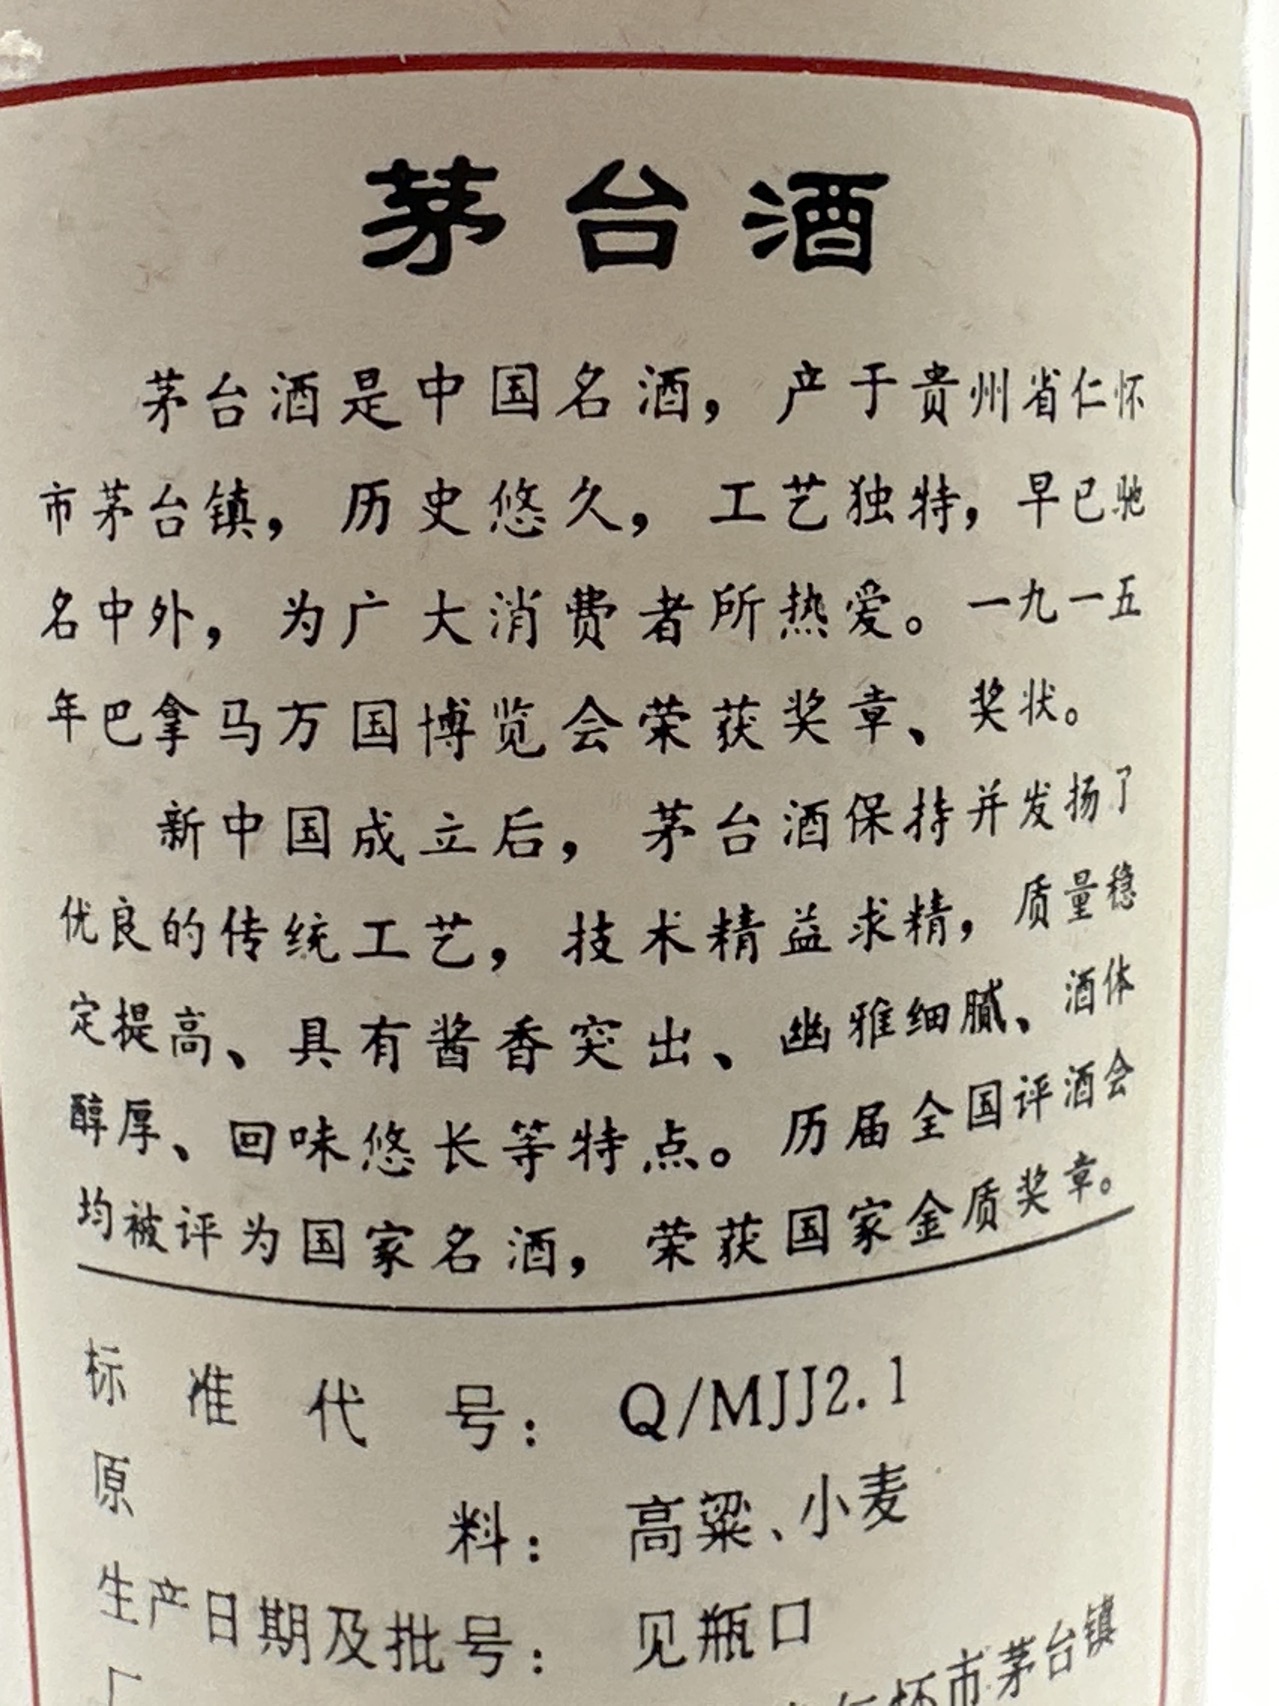 茅台酒
茅台酒是中国名酒，产于贵州省仁怀
市茅台镇，历史悠久，工艺独特，早已驰
名中外，为广大消费者所热爱。一九一五
年巴拿马万国博览会荣获奖章、奖状。
新中国成立后，茅台酒保持并发扬了
优良的传统工艺，技术精益求精，质量稳
定提高、具有酱香突出、幽雅细腻、酒体
醇厚、回味悠长等特点。历届全国评酒会
均被评为国家名酒，荣获国家金质奖章。
标准代号：Q/MJJ2.1
原料：高粱、小麦
生产日期及批号：见瓶口
仁怀市茅台镇